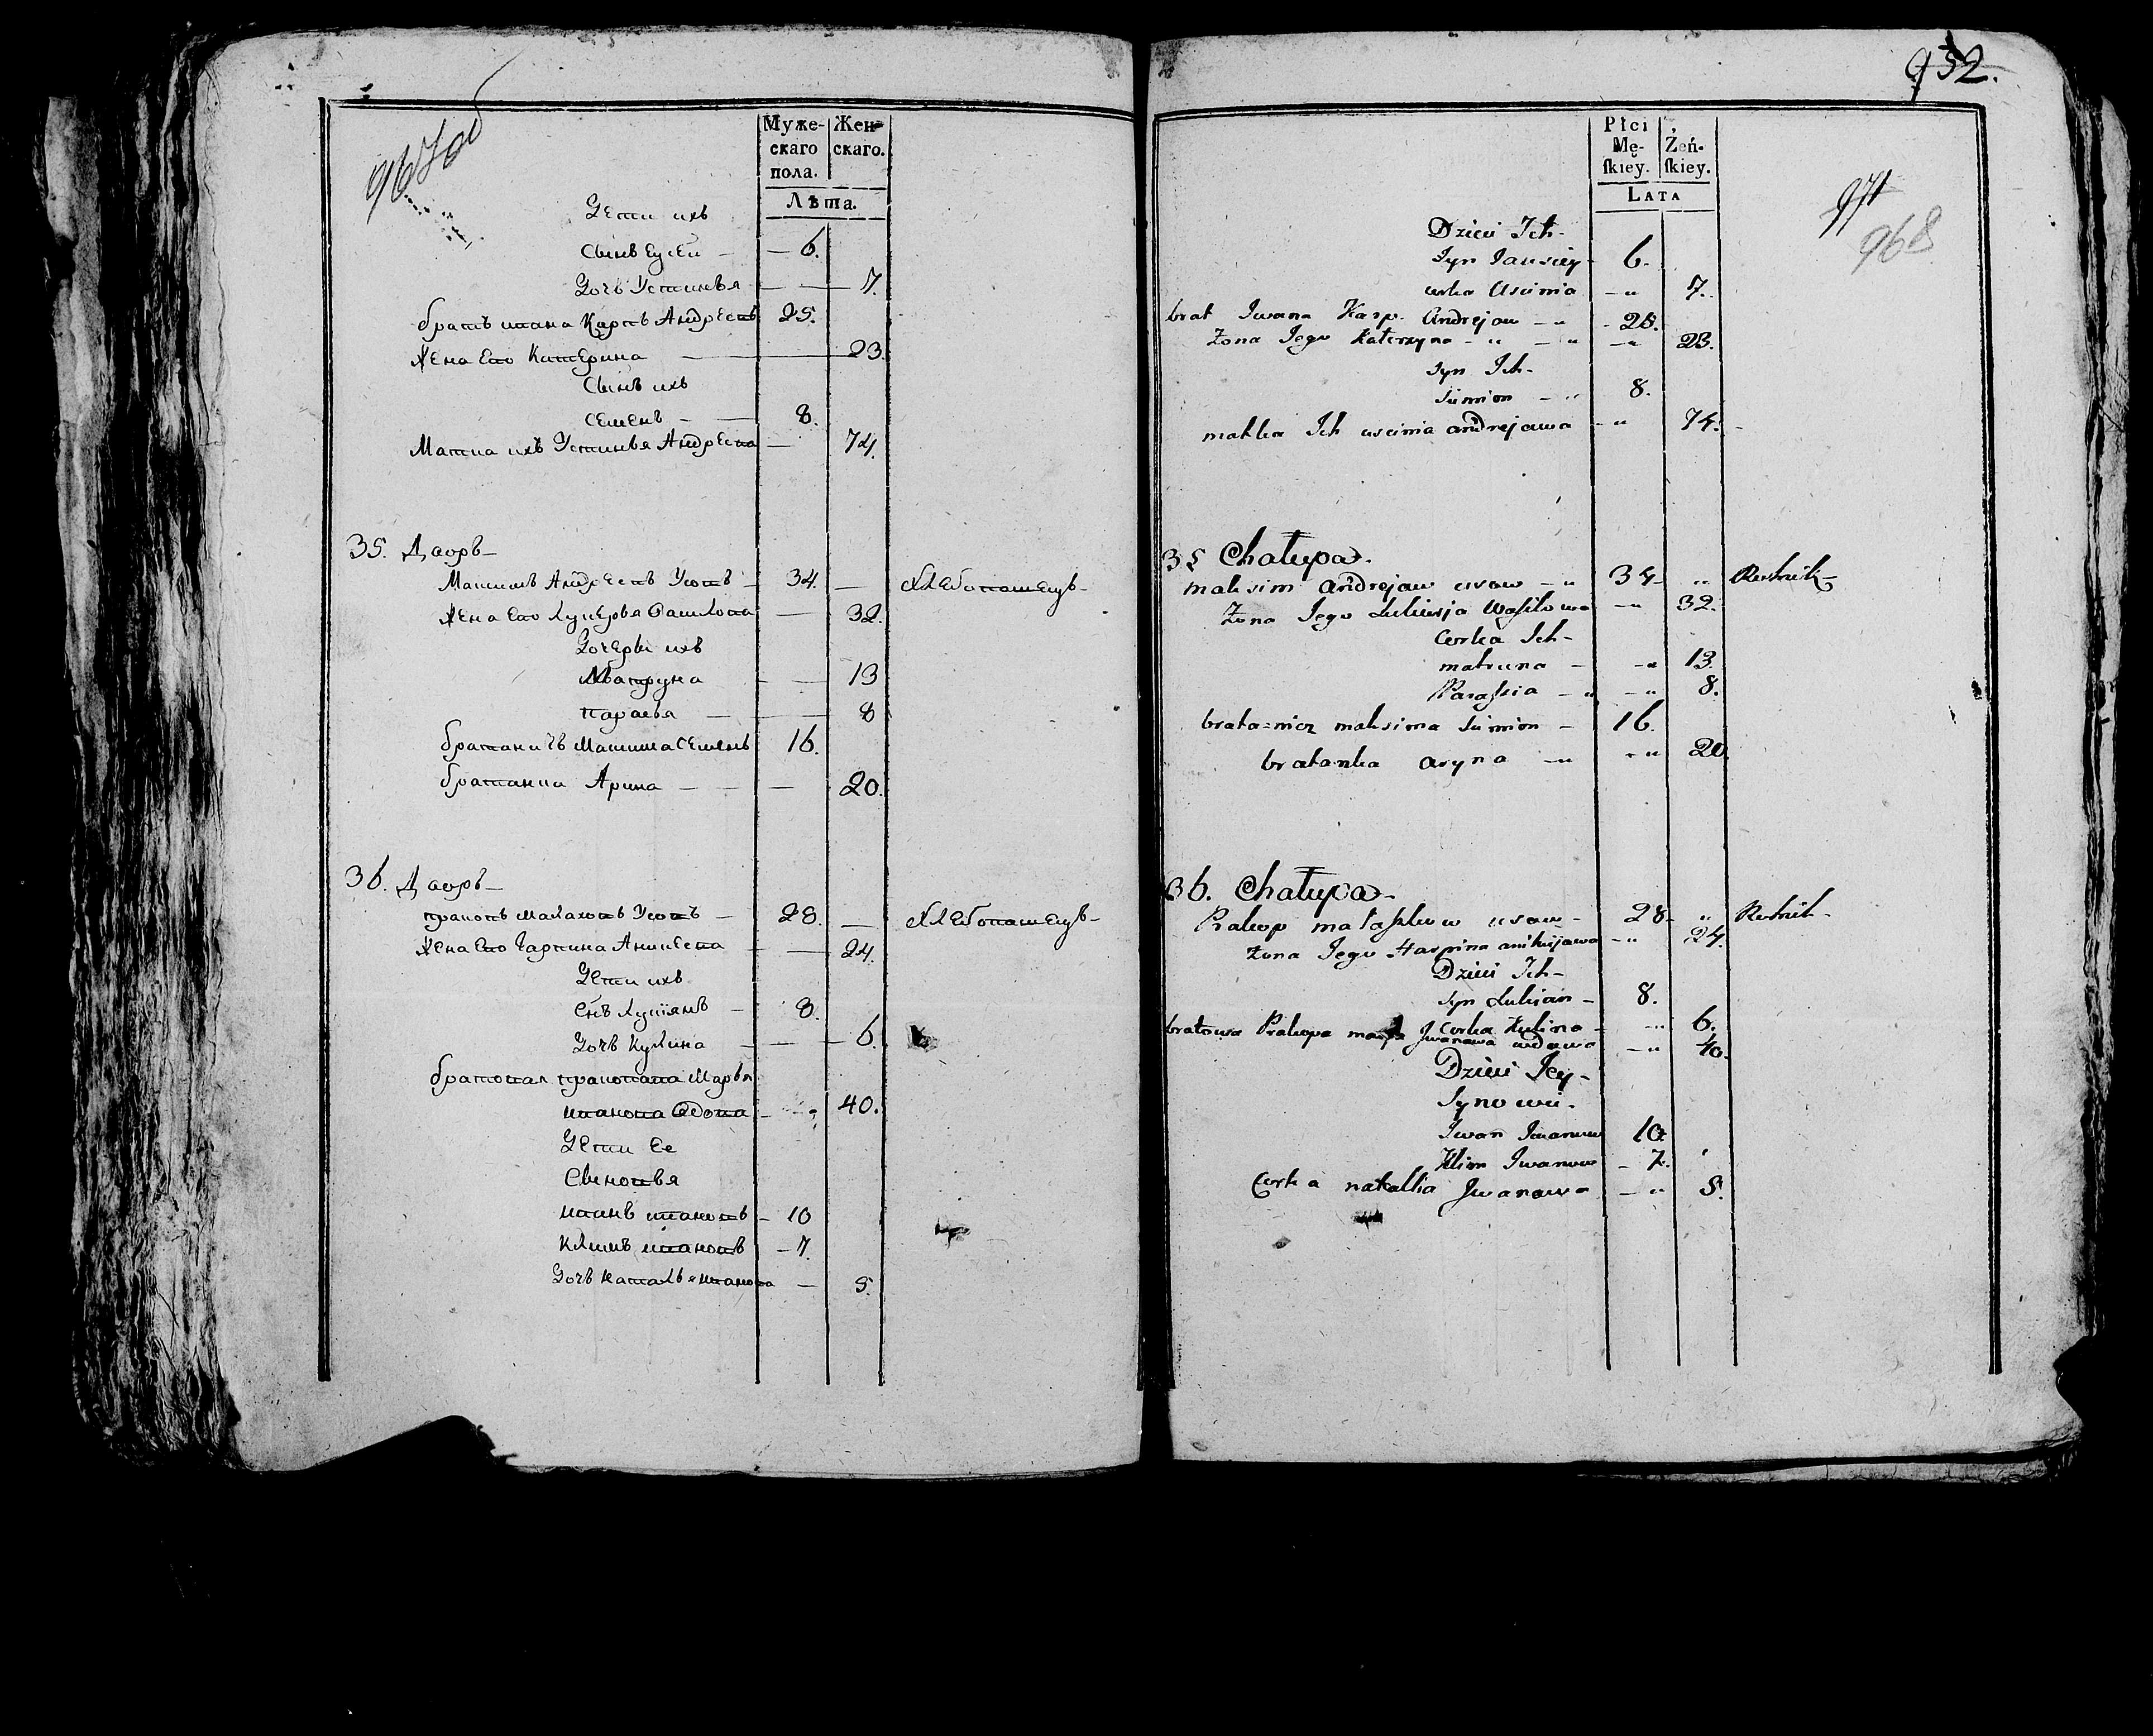 967 об
Муже-
скаго
пола.
Жен-
скаго.
Лѣта.
Дети ихъ
Сынъ Еусей — 6.
Дочь Устинья — 7.
братъ ивана Карпъ Андреевъ 25.
Жена Его Катерина — 23.
Сынъ ихъ
Семенъ — 8.
Матка ихъ Устинья Андреева — 74.
35. Дворъ —
Максимъ Андреевъ Усовъ — 34. — Хлебопашецъ —
Жена Его Лукерья Василова — 32.
Дочери ихъ
Матруна — 13
Парасья — 8
братаничъ Максима Семенъ 16.
братанка Арина — 20.
36. Дворъ —
Пракопъ Малаховъ Усовъ — 28. — Хлебопашецъ —
Жена Его Гарпина Аникеева — 24.
Дети ихъ
Снъ Лукіянъ — 8.
Дочь Кулина — 6.
братовая пракопава Марья
иванова Вдова — 40.
Дети Ее
Сыновья
иванъ ивановъ — 10
Климъ ивановъ — 7.
Дочь Наталья иванова — 5.
952.
Płci
Mę-
ſkiey.
Żeń-
ſkiey.
LATA
971
968
Dzieci Ich -
Syn Jausiey 6.
corka Uscinia 7.
brat Iwana Karp Andrejow 25.
Żona Jego Katerzyna 23.
Syn Ich -
Siemion 8.
matka Ich uscinia andrejowa 74.
35 Chałupa.
maksim andrejow usow 34 Rolnik -
Żona Jego Lukierja Waſilowa 32.
Corka Ich -
matruna 13.
Paraſkia 8.
brata=nicz maksima Siemion 16.
bratanka aryna 20
36. Chałupa -
Prakop małaſzkow usow - 28 Rolnik -
Żona Jego Harpina anikiejowa 24.
Dzieci Ich -
Syn Lukian - 8.
Corka Kulina 6.
bratowa Prakopa marja Iwanowa wdowa 40.
Dzieci Jey -
Synowie.
Iwan Iwanow 10
Klim Iwanow 7.
Corka natallia Iwanowa 5.